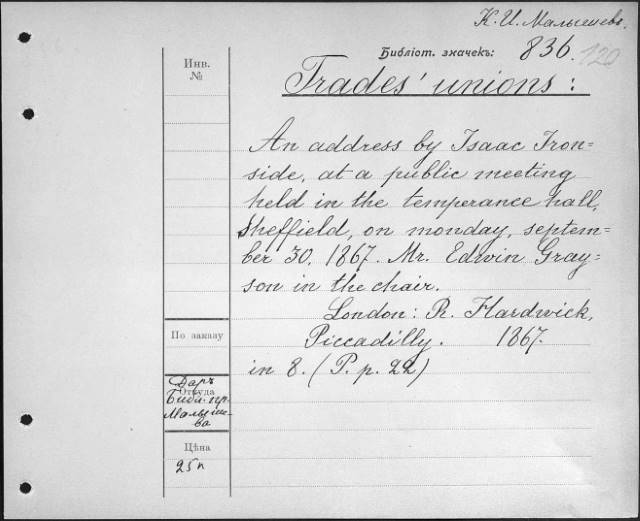 К. И. Малышевъ.
Библіот. значекъ: 836 120
Инв.
№
Trades' unions:
An address by Isaac Iron=
side, at a public meeting
held in the temperance hall,
Sheffield, on monday, septem=
ber 30. 1867. Mr. Edwin Gray=
son in the chair.
London: R. Hardwick,
Piccadilly. 1867.
in 8. (P. p. 22)
По заказу
Даръ
Откуда
Библ. пр.
Малыше-
ва
Цѣна
25 п